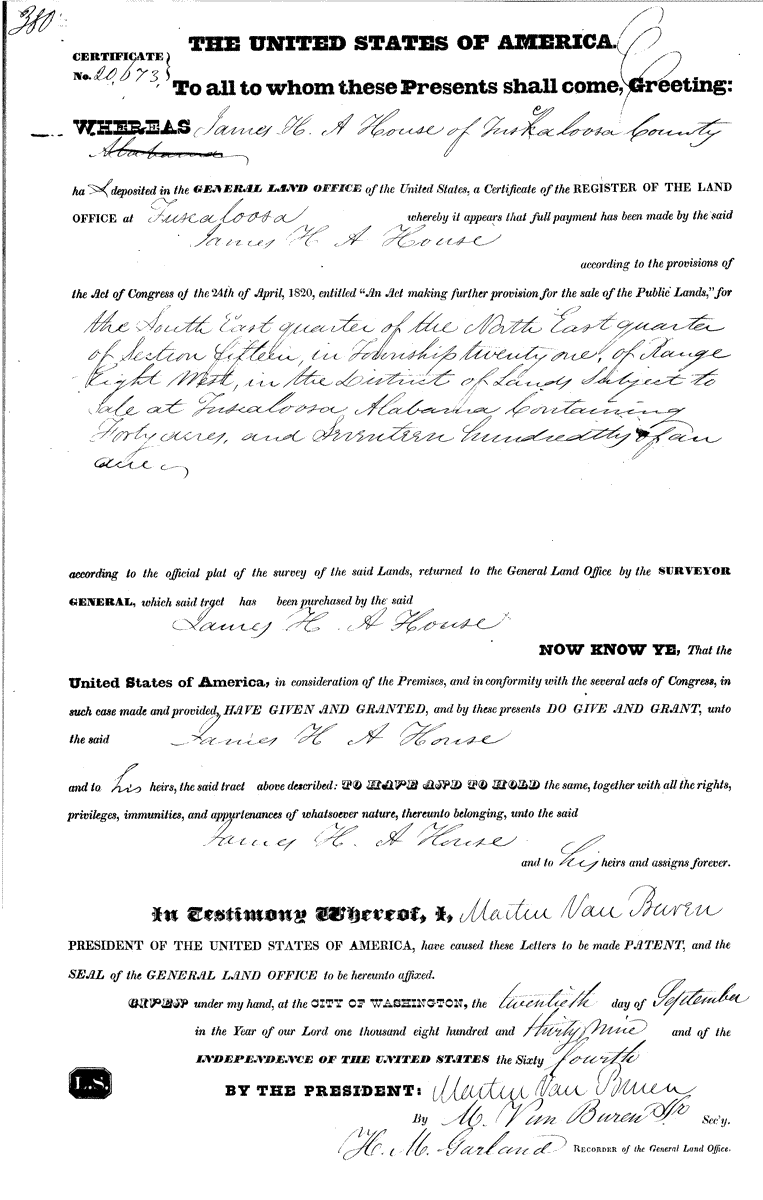 380
THE UNITED STATES OF AMERICA.
CERTIFICATE
No. 20,673
To all to whom these Presents shall come, Greeting:
WHEREAS James H. A House of Tuskaloosa County
Alabama
ha s deposited in the GENERAL LAND OFFICE of the United States, a Certificate of the REGISTER OF THE LAND
OFFICE at Tuscaloosa whereby it appears that full payment has been made by the said
James H A House
according to the provisions of
the Act of Congress of the 24th of April, 1820, entitled "An Act making further provision for the sale of the Public Lands," for
the South East quarter of the North East quarter
of Section fifteen, in Township twenty one, of Range
Eight West, in the District of Lands Subject to
Sale at Tuscaloosa Alabama Containing
Forty acres, and Seventeen hundredths of an
acre
according to the official plat of the survey of the said Lands, returned to the General Land Office by the SURVEYOR
GENERAL, which said tract has been purchased by the said
James H A House
NOW KNOW YE, That the
United States of America, in consideration of the Premises, and in conformity with the several acts of Congress, in
such case made and provided, HAVE GIVEN AND GRANTED, and by these presents DO GIVE AND GRANT, unto
the said James H A House
and to his heirs, the said tract above described: TO HAVE AND TO HOLD the same, together with all the rights,
privileges, immunities, and appurtenances of whatsoever nature, thereunto belonging, unto the said
James H. A House
and to his heirs and assigns forever.
In Testimony Whereof, I, Martin Van Buren
PRESIDENT OF THE UNITED STATES OF AMERICA, have caused these Letters to be made PATENT, and the
SEAL of the GENERAL LAND OFFICE to be hereunto affixed.
GIVEN under my hand, at the CITY OF WASHINGTON, the twentieth day of September
in the Year of our Lord one thousand eight hundred and thirty nine and of the
INDEPENDENCE OF THE UNITED STATES the Sixty fourth
L.S.
BY THE PRESIDENT: Martin Van Buren
By M. Van Buren Jr Sec'y.
H. M. Garland RECORDER of the General Land Office.